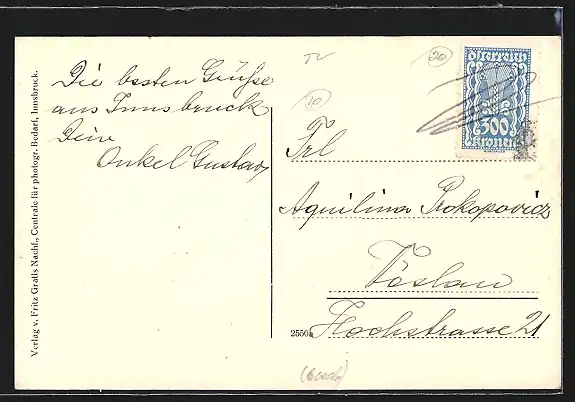 Verlag v. Fritz Gratls Nachf., Centrale für photogr. Bedarf, Innsbruck.
Die besten Grüsse
aus Innsbruck
Dein
Onkel Gustav
TV
20
10
Österreich
300
Kronen
Frl
Aquilina Prokopovicz
Vöslau
Hochstrasse 21
2550a